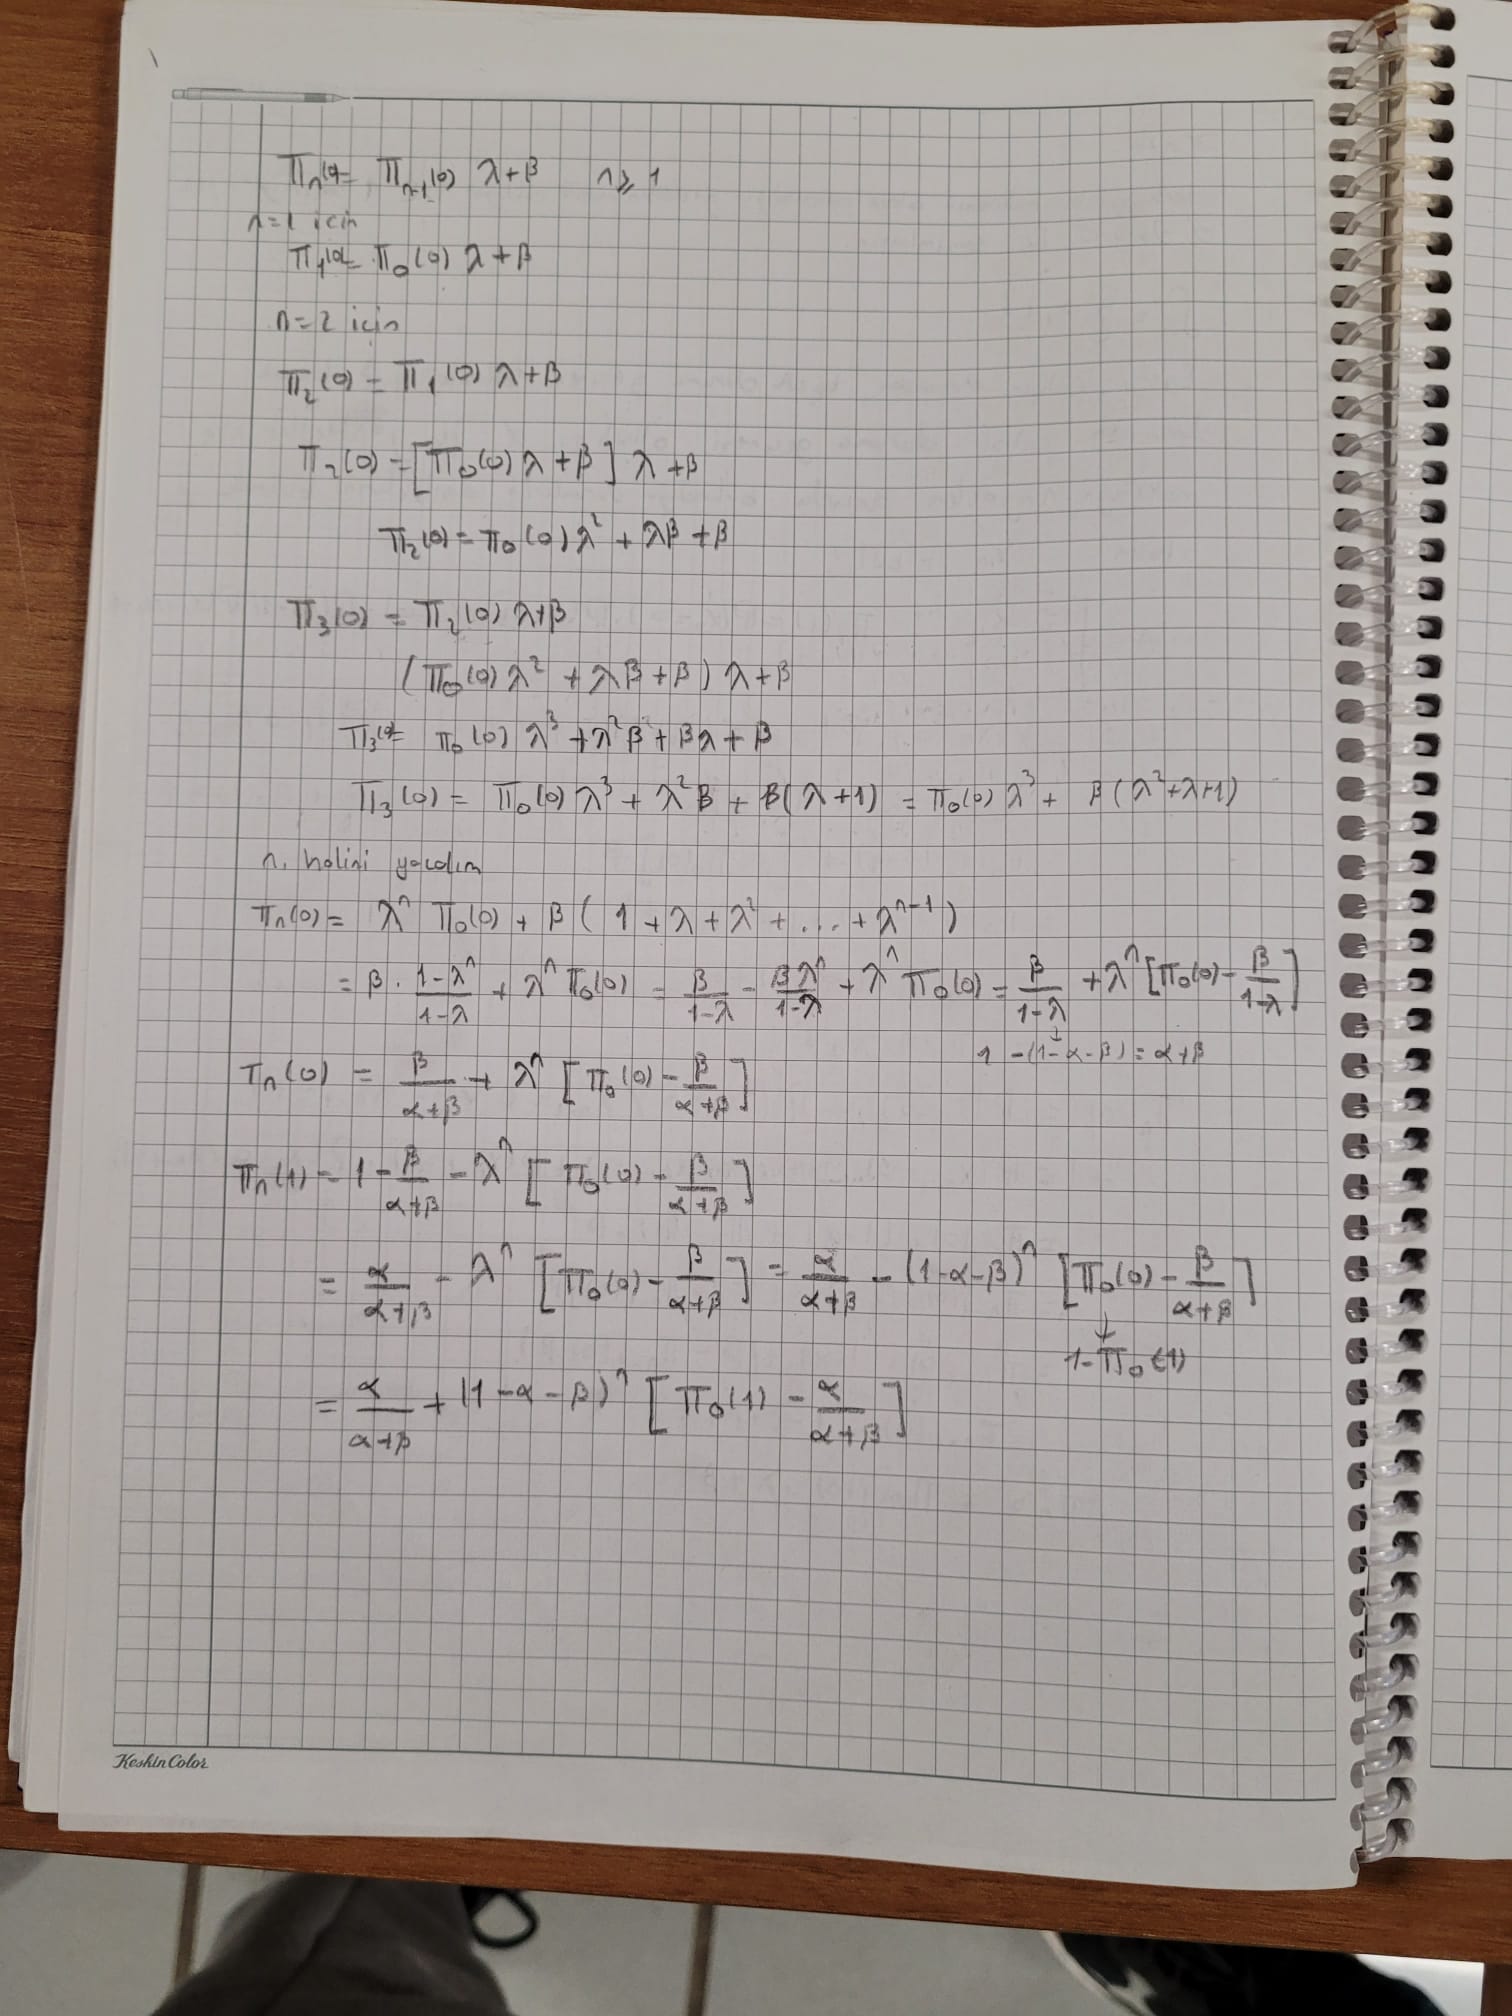 Πn(0) = Πn-1(0) λ+β n ≥ 1
n=1 icin
Π1(0) = Π0(0) λ+β
n=2 için
Π2(0) = Π1(0) λ+β
Π2(0) = [Π0(0) λ + β] λ + β
Π2(0) = Π0(0) λ² + λβ + β
Π3(0) = Π2(0) λ+β
(Π0(0) λ² + λβ + β) λ + β
Π3(0) = Π0(0) λ³ + λ²β + βλ + β
Π3(0) = Π0(0) λ³ + λ²β + β(λ+1) = Π0(0) λ³ + β(λ²+λ+1)
n. halini yazalım
Πn(0) = λⁿ Π0(0) + β (1 + λ + λ² + ... + λⁿ⁻¹)
= β . (1-λⁿ)/(1-λ) + λⁿ Π0(0) = β/(1-λ) - βλⁿ/(1-λ) + λⁿ Π0(0) = β/(1-λ) + λⁿ [Π0(0) - β/(1-λ)]
↓
1 - (1-α-β) = α+β
Πn(0) = β/(α+β) + λⁿ [Π0(0) - β/(α+β)]
Πn(1) = 1 - β/(α+β) - λⁿ [Π0(0) - β/(α+β)]
= α/(α+β) - λⁿ [Π0(0) - β/(α+β)] = α/(α+β) - (1-α-β)ⁿ [Π0(0) - β/(α+β)]
↓
1-Π0(1)
= α/(α+β) + (1-α-β)ⁿ [Π0(1) - α/(α+β)]
KeskinColor